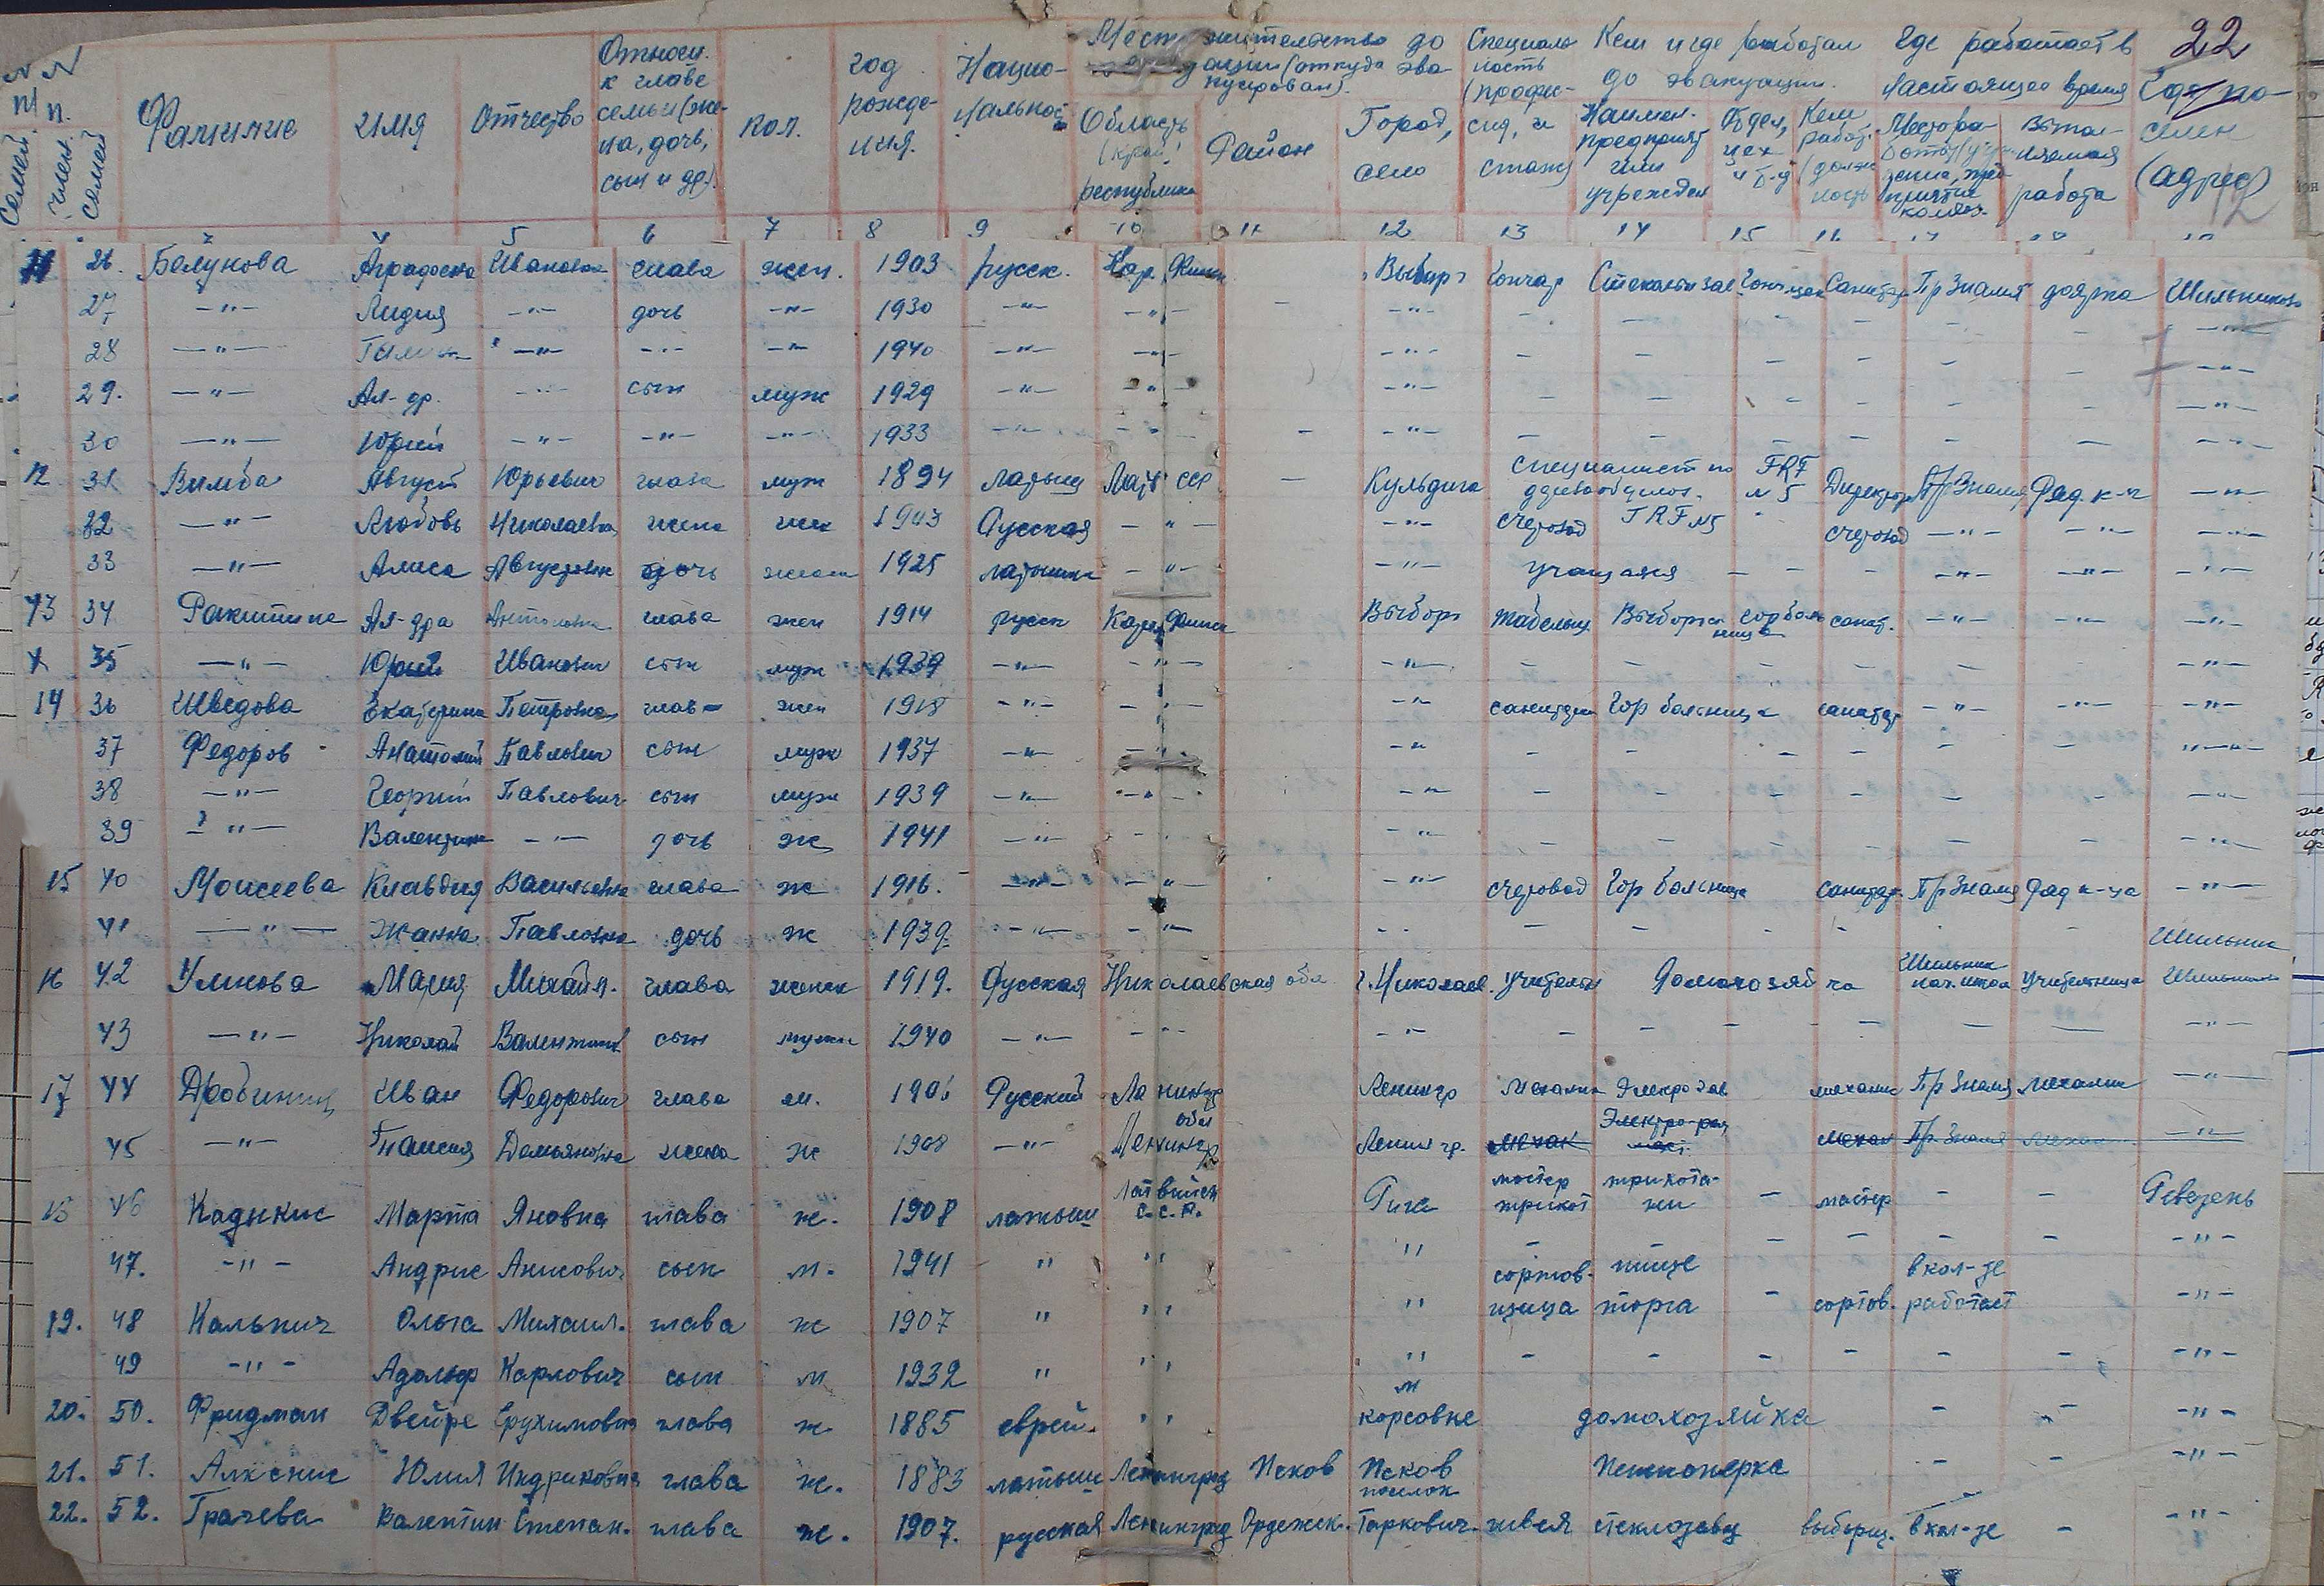 22
№ № п/п. Фамилие имя Отчество Относ. к главе семьи (жена, дочь, сын и др). пол. год рождения. Национальност Место жительство до (откуда эвакуирован). Специальность (професия, и стаж) Кем и где работал до эвакуации. Где работает в настоящее время
семей член. семей Область (край) республика Район Город, село Наимен. предприят или учрежден Отдел, цех Кем работ. (должность Выполняемая работа (адрес)
6 7 8 9 10 11 12 13 14 15 16
26. Иванова глава жен. 1903 русск. Кар. Финн Выборг гончар Санитар Пр Знамя доярка Шильниково
27 —"— Лидия —"— дочь —"— 1930 —"— —"— — —"— — — — — — — —"—
28 —"— —"— —"— —"— 1940 —"— —"— —"— — — — — — — —"—
29. —"— Ал-др. —"— сын муж 1929 —"— —"— —"— — — — — — — —"—
30 —"— Юрий —"— —"— —"— 1933 —"— —"— — —"— — — — — — — —"—
12 31 Вимба Август Юрьевич глава муж 1894 латыш Латв ССР — Кульдига специалист по № 5 Директор Пр Знамя Ряд. к-к —"—
32 —"— Любовь Николаевна жена жен 1903 Русская —"— —"— счетовод №5 счетовод —"— —"— —"—
33 —"— Алиса Августовна дочь женск 1925 латышка —"— —"— учащаяся — — — —"— —"— —"—
13 34 Ракитина Ал-дра глава жен 1914 русск Карел Финск Выборг табельщ. Выборгск гор больница санит. —"— —"— —"—
35 —"— Юрий Иванович сын муж 1939 —"— —"— —"— — — — — — — —"—
14 36 Шведова Екатерина Петровна глава жен 1918 —"— —"— —"— санитарк Гор больница санитар —"— —"— —"—
37 Федоров Анатолий Павлович сын муж 1937 —"— —"— —"— — — — — — — —"—
38 —"— Георгий Павлович сын муж 1939 —"— —"— —"— — — — — — — —"—
39 —"— Валентина —"— дочь ж 1941 —"— —"— —"— — — — — — — —"—
15 40 Моисеева Клавдия Васильевна глава ж 1916. —"— —"— —"— счетовод Гор больница санитар. Пр Знамя Ряд к-ца —"—
41 —"— Жанна Павловна дочь ж 1939. —"— —"— —"— — — — — — — Шильник
16 42 Улинова Мария Михайл. глава женск 1919. Русская Николаевская обл г. Николаев. учитель Домохозяйка Шильник нач. школ учительница Шильник
43 —"— Николай Валентинов сын мужск 1940 —"— —"— —"— — — — — — — —"—
17 44 Дробинин Иван Федорович глава м. Русский Ленингр обл Ленингр Механик механик Пр Знамя механик —"—
45 —"— Таисия Демьяновна жена ж 1908 —"— Ленингр Ленингр. механ Пр. Знамя механ —"—
46 Кадикис Марта Яновна глава ж. 1908 латыш Латвийск С.С.Р. Рига мастер трикот трикотажн — мастер — — Ревезень
47. —"— Андрис Анисович сын м. 1941 " " " — — — — — — —"—
19. 48 Кальнич Ольга Михаил. глава ж 1907 " " " сортовщица пище торга — сортов. в кол-зе работает —"—
49 —"— Адольф Карлович сын м 1932 " " " — — — — — — —"—
20. 50. Фридман Двейре Ерухимовна глава ж 1885 еврей. " м корсовке домохозяйка — — —"—
21. 51. Алкснис Юлия Индриковна глава ж. 1883 латыш Ленинград Псков Псков Пенсионерка — — —"—
22. 52. Грачева Валентин Степан. глава ж. 1907. русская Ленинград Ордежск. поселок Таркович. швея стеклозавод выборщ. в кол-зе — —"—